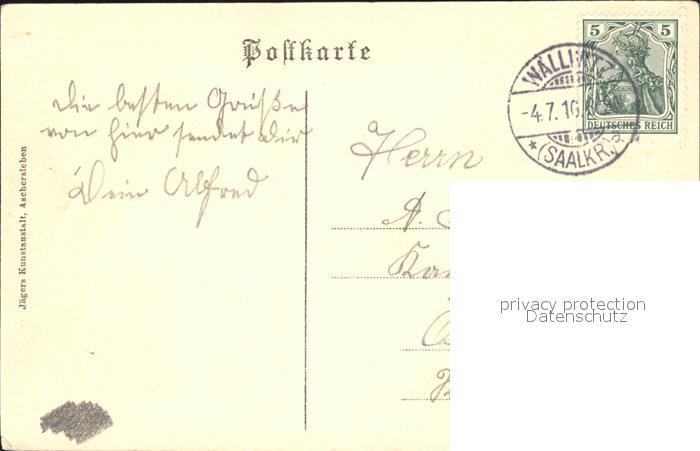 Postkarte
5 5
DEUTSCHES REICH
WALLWITZ
-4.7.10.8
*(SAALKR.)a
Die besten Grüße
von hier sendet Dir
Dein Alfred
Herrn
A.
Jägers Kunstanstalt, Aschersleben
privacy protection
Datenschutz